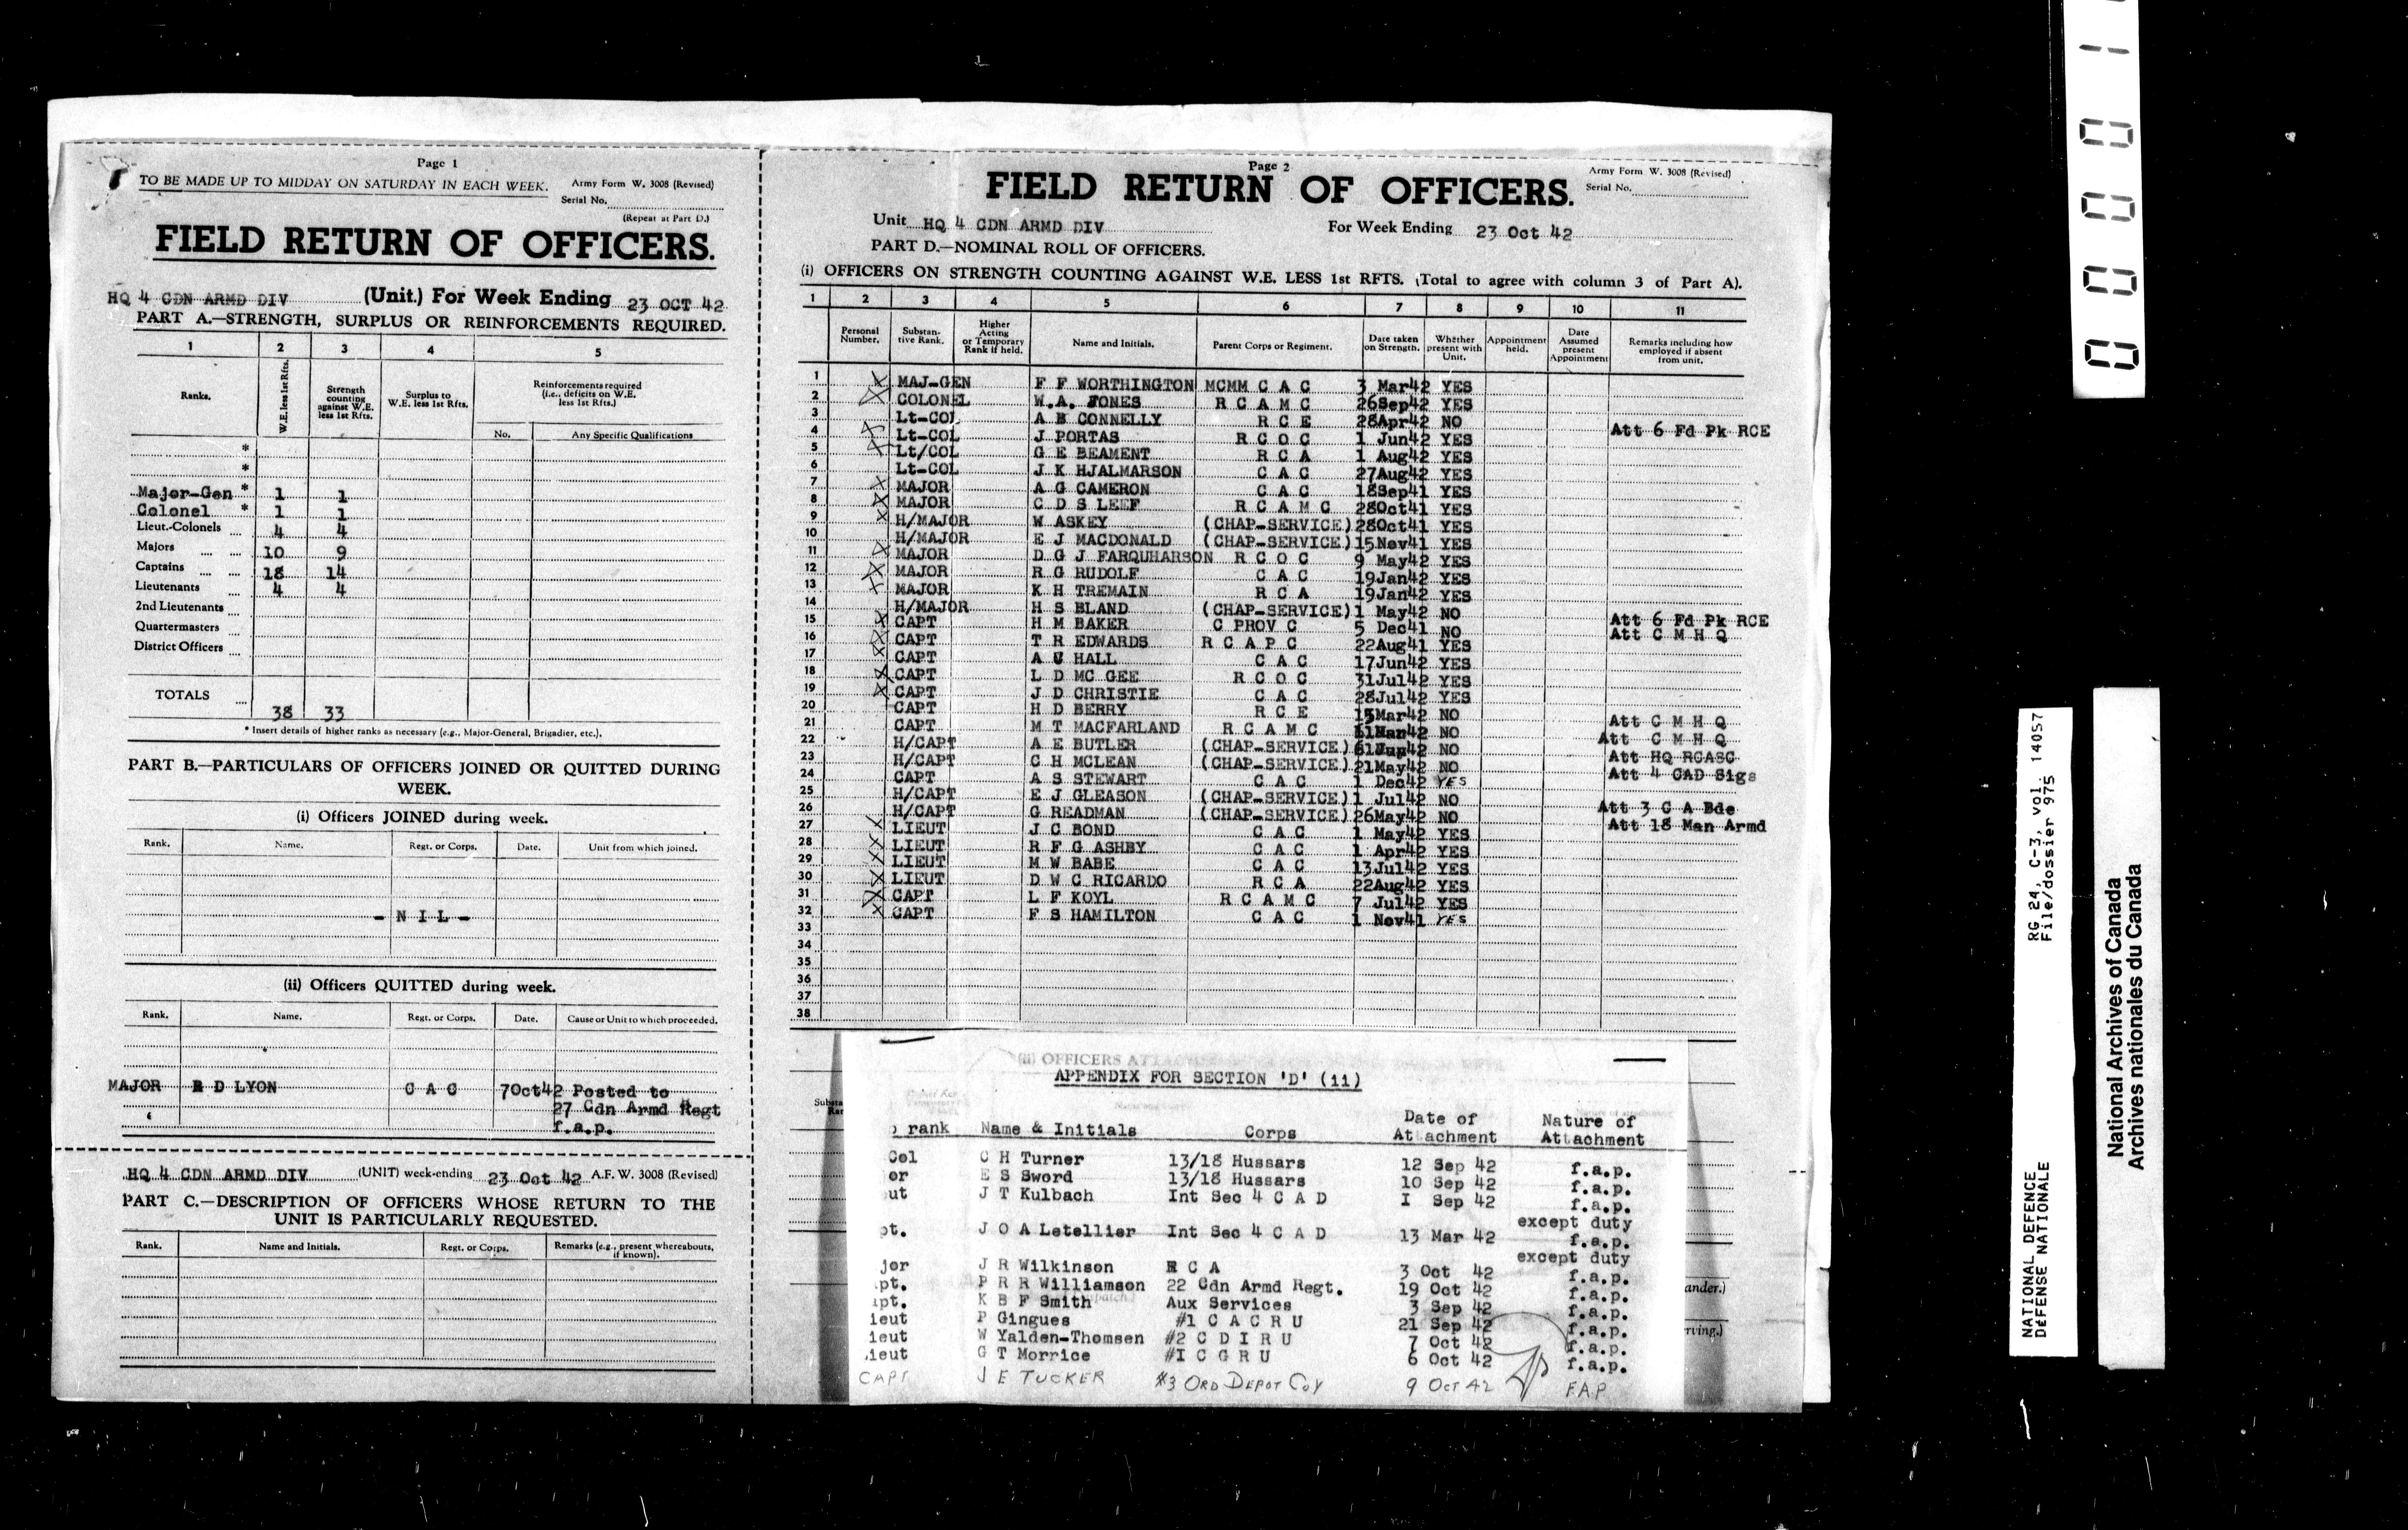 Page 1
TO BE MADE UP TO MIDDAY ON SATURDAY IN EACH WEEK. Army Form W. 3008 (Revised)
Serial No.
(Repeat at Part D.)
FIELD RETURN OF OFFICERS.
HQ 4 CDN ARMD DIV (Unit.) For Week Ending 23 OCT 42
PART A.—STRENGTH, SURPLUS OR REINFORCEMENTS REQUIRED.
1 2 3 4 5
Ranks. W.E. less 1st Rfts. Strength counting against W.E. less 1st Rfts. Surplus to W.E. less 1st Rfts. Reinforcements required (i.e., deficits on W.E. less 1st Rfts.)
No. Any Specific Qualifications
*
*
Major-Gen * 1 1
Colonel * 1 1
Lieut.-Colonels 4 4
Majors 10 9
Captains 18 14
Lieutenants 4 4
2nd Lieutenants
Quartermasters
District Officers
TOTALS 38 33
* Insert details of higher ranks as necessary (e.g., Major-General, Brigadier, etc.).
PART B.—PARTICULARS OF OFFICERS JOINED OR QUITTED DURING
WEEK.
(i) Officers JOINED during week.
Rank. Name. Regt. or Corps. Date. Unit from which joined.
- N I L -
(ii) Officers QUITTED during week.
Rank. Name. Regt. or Corps. Date. Cause or Unit to which proceeded.
MAJOR R D LYON C A C 7Oct42 Posted to
27 Cdn Armd Regt
f.a.p.
HQ 4 CDN ARMD DIV (UNIT) week-ending 23 Oct 42 A.F.W. 3008 (Revised)
PART C.—DESCRIPTION OF OFFICERS WHOSE RETURN TO THE
UNIT IS PARTICULARLY REQUESTED.
Rank. Name and Initials. Regt. or Corps. Remarks (e.g., present whereabouts, if known).
Page 2
FIELD RETURN OF OFFICERS. Army Form W. 3008 (Revised)
Serial No.
Unit HQ 4 CDN ARMD DIV For Week Ending 23 Oct 42
PART D.—NOMINAL ROLL OF OFFICERS.
(i) OFFICERS ON STRENGTH COUNTING AGAINST W.E. LESS 1st RFTS. (Total to agree with column 3 of Part A).
1 2 3 4 5 6 7 8 9 10 11
Personal Number. Substantive Rank. Higher Acting or Temporary Rank if held. Name and Initials. Parent Corps or Regiment. Date taken on Strength. Whether present with Unit. Appointment held. Date Assumed present Appointment Remarks including how employed if absent from unit.
1 MAJ-GEN F F WORTHINGTON MCMM C A C 3 Mar42 YES
2 COLONEL W.A. JONES R C A M C 26Sep42 YES
3 Lt-COL A B CONNELLY R C E 28Apr42 NO Att 6 Fd Pk RCE
4 Lt-COL J PORTAS R C O C 1 Jun42 YES
5 Lt/COL G E BEAMENT R C A 1 Aug42 YES
6 Lt-COL J K HJALMARSON C A C 27Aug42 YES
7 MAJOR A G CAMERON C A C 18Sep41 YES
8 MAJOR C D S LEEF R C A M C 28Oct41 YES
9 H/MAJOR W ASKEY (CHAP-SERVICE) 28Oct41 YES
10 H/MAJOR E J MACDONALD (CHAP-SERVICE) 15Nov41 YES
11 MAJOR D G J FARQUHARSON R C O C 9 May42 YES
12 MAJOR R G RUDOLF C A C 19Jan42 YES
13 MAJOR K H TREMAIN R C A 19Jan42 YES
14 H/MAJOR H S BLAND (CHAP-SERVICE) 1 May42 NO Att 6 Fd Pk RCE
15 CAPT H M BAKER C PROV C 5 Dec41 NO Att C M H Q
16 CAPT T R EDWARDS R C A P C 22Aug41 YES
17 CAPT A C HALL C A C 17Jun42 YES
18 CAPT L D MC GEE R C O C 31Jul42 YES
19 CAPT J D CHRISTIE C A C 28Jul42 YES
20 CAPT H D BERRY R C E 15Mar42 NO Att C M H Q
21 CAPT M T MACFARLAND R C A M C NO Att C M H Q
22 H/CAPT A E BUTLER (CHAP-SERVICE) NO Att HQ RCASC
23 H/CAPT C H MCLEAN (CHAP-SERVICE) 21May42 NO Att 4 CAD Sigs
24 CAPT A S STEWART C A C 1 Dec42 YES
25 H/CAPT E J GLEASON (CHAP-SERVICE) 1 Jul42 NO Att 3 C A Bde
26 H/CAPT G READMAN (CHAP-SERVICE) 26May42 NO Att 18 Man Armd
27 LIEUT J C BOND C A C 1 May42 YES
28 LIEUT R F G ASHBY C A C 1 Apr42 YES
29 LIEUT M W BABE C A C 13Jul42 YES
30 LIEUT D W C RICARDO R C A 22Aug42 YES
31 CAPT L F KOYL R C A M C 7 Jul42 YES
32 CAPT F S HAMILTON C A C 1 Nov41 YES
33
34
35
36
37
38
(ii) OFFICERS
APPENDIX FOR SECTION 'D' (ii)
rank Name & Initials Corps Date of Attachment Nature of Attachment
Col C H Turner 13/18 Hussars 12 Sep 42 f.a.p.
or E S Sword 13/18 Hussars 10 Sep 42 f.a.p.
ut J T Kulbach Int Sec 4 C A D I Sep 42 f.a.p.
except duty
pt. J O A Letellier Int Sec 4 C A D 13 Mar 42 f.a.p.
except duty
jor J R Wilkinson R C A 3 Oct 42 f.a.p.
pt. P R R Williamson 22 Cdn Armd Regt. 19 Oct 42 f.a.p.
pt. K B F Smith Aux Services 3 Sep 42 f.a.p.
ieut P Gingues #1 C A C R U 21 Sep 42 f.a.p.
ieut W Yalden-Thomsen #2 C D I R U 7 Oct 42 f.a.p.
ieut G T Morrice #I C G R U 6 Oct 42 f.a.p.
CAPT J E TUCKER #3 ORD DEPOT COY 9 OCT 42 F.A.P
ander.)
rving.)
NATIONAL DEFENCE RG 24, C-3, vol. 14057
DÉFENSE NATIONALE File/dossier 975
National Archives of Canada
Archives nationales du Canada